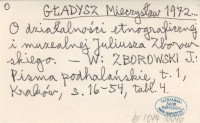 O
GŁADYSZ Mieczysław 1972...
O działalności etnograficznej
i muzealnej Juliusza Zborow-
skiego. – W: ZBOROWSKI J.:
Pisma podhalańskie, t. 1,
Kraków, s. 16-54, tabl. 4.